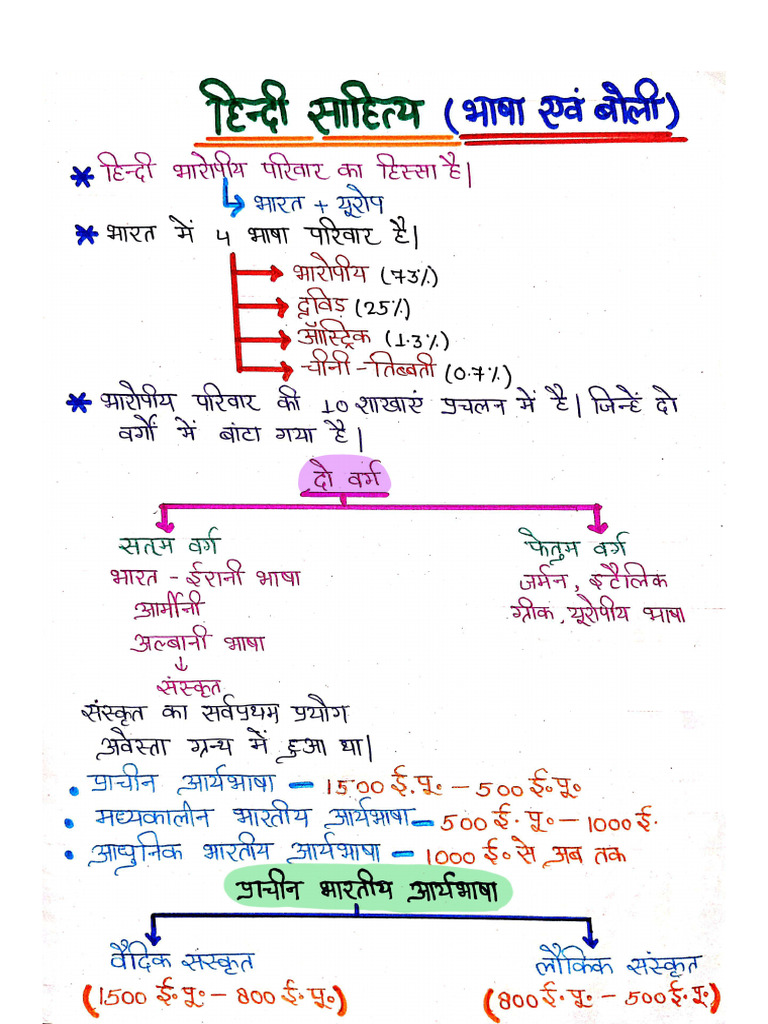 हिन्दी साहित्य (भाषा एवं बोली)
* हिन्दी भारोपीय परिवार का हिस्सा है|
भारत + यूरोप
* भारत में 4 भाषा परिवार है|
भारोपीय (73%)
द्रविड़ (25%)
ऑस्ट्रिक (1.3%)
चीनी - तिब्बती (0.7%)
* भारोपीय परिवार की 10 शाखाएं प्रचलन में है| जिन्हें दो
वर्गों में बांटा गया है|
दो वर्ग
सतम वर्ग फेतुम वर्ग
भारत - ईरानी भाषा जर्मन, इटैलिक
आर्मीनी ग्रीक, यूरोपीय भाषा
अल्बानी भाषा
संस्कृत
संस्कृत का सर्वप्रथम प्रयोग
अवेस्ता ग्रन्थ में हुआ था|
• प्राचीन आर्यभाषा - 1500 ई.पू. - 500 ई.पू.
• मध्यकालीन भारतीय आर्यभाषा - 500 ई. पू. - 1000 ई.
• आधुनिक भारतीय आर्यभाषा - 1000 ई. से अब तक
प्राचीन भारतीय आर्यभाषा
वैदिक संस्कृत लौकिक संस्कृत
(1500 ई.पू. - 800 ई.पू.) (800 ई.पू. - 500 ई.पू.)